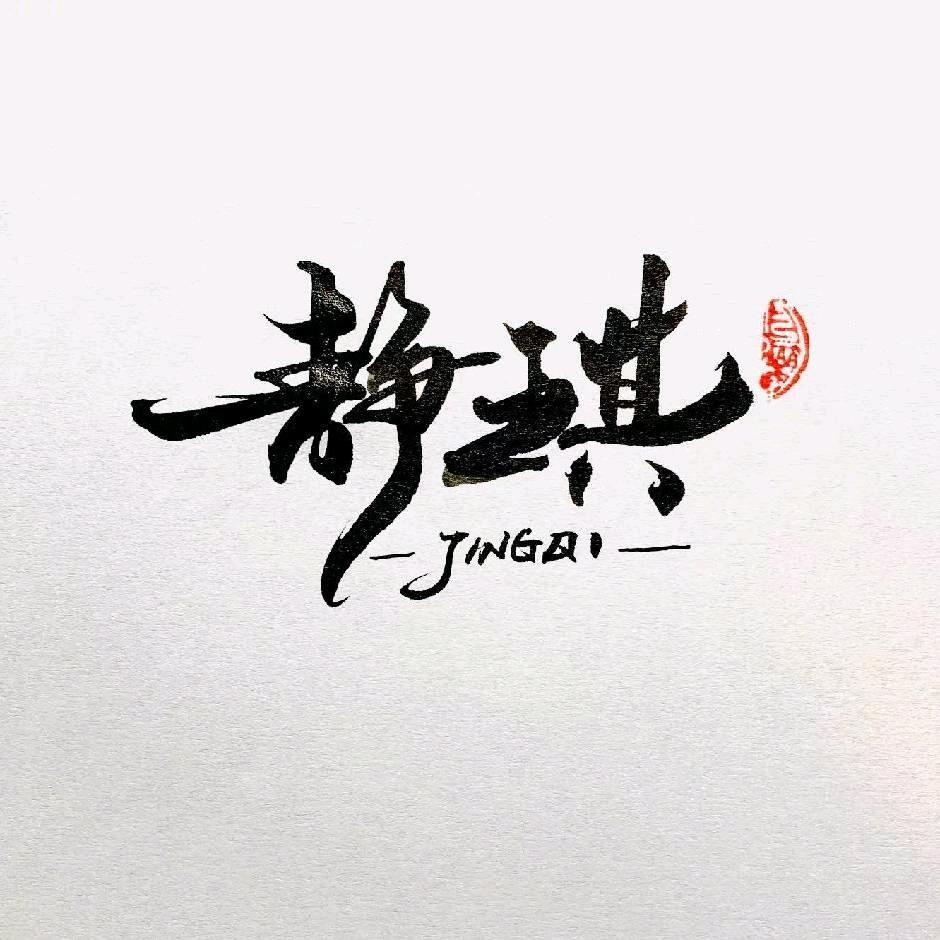 静琪
JINGQI